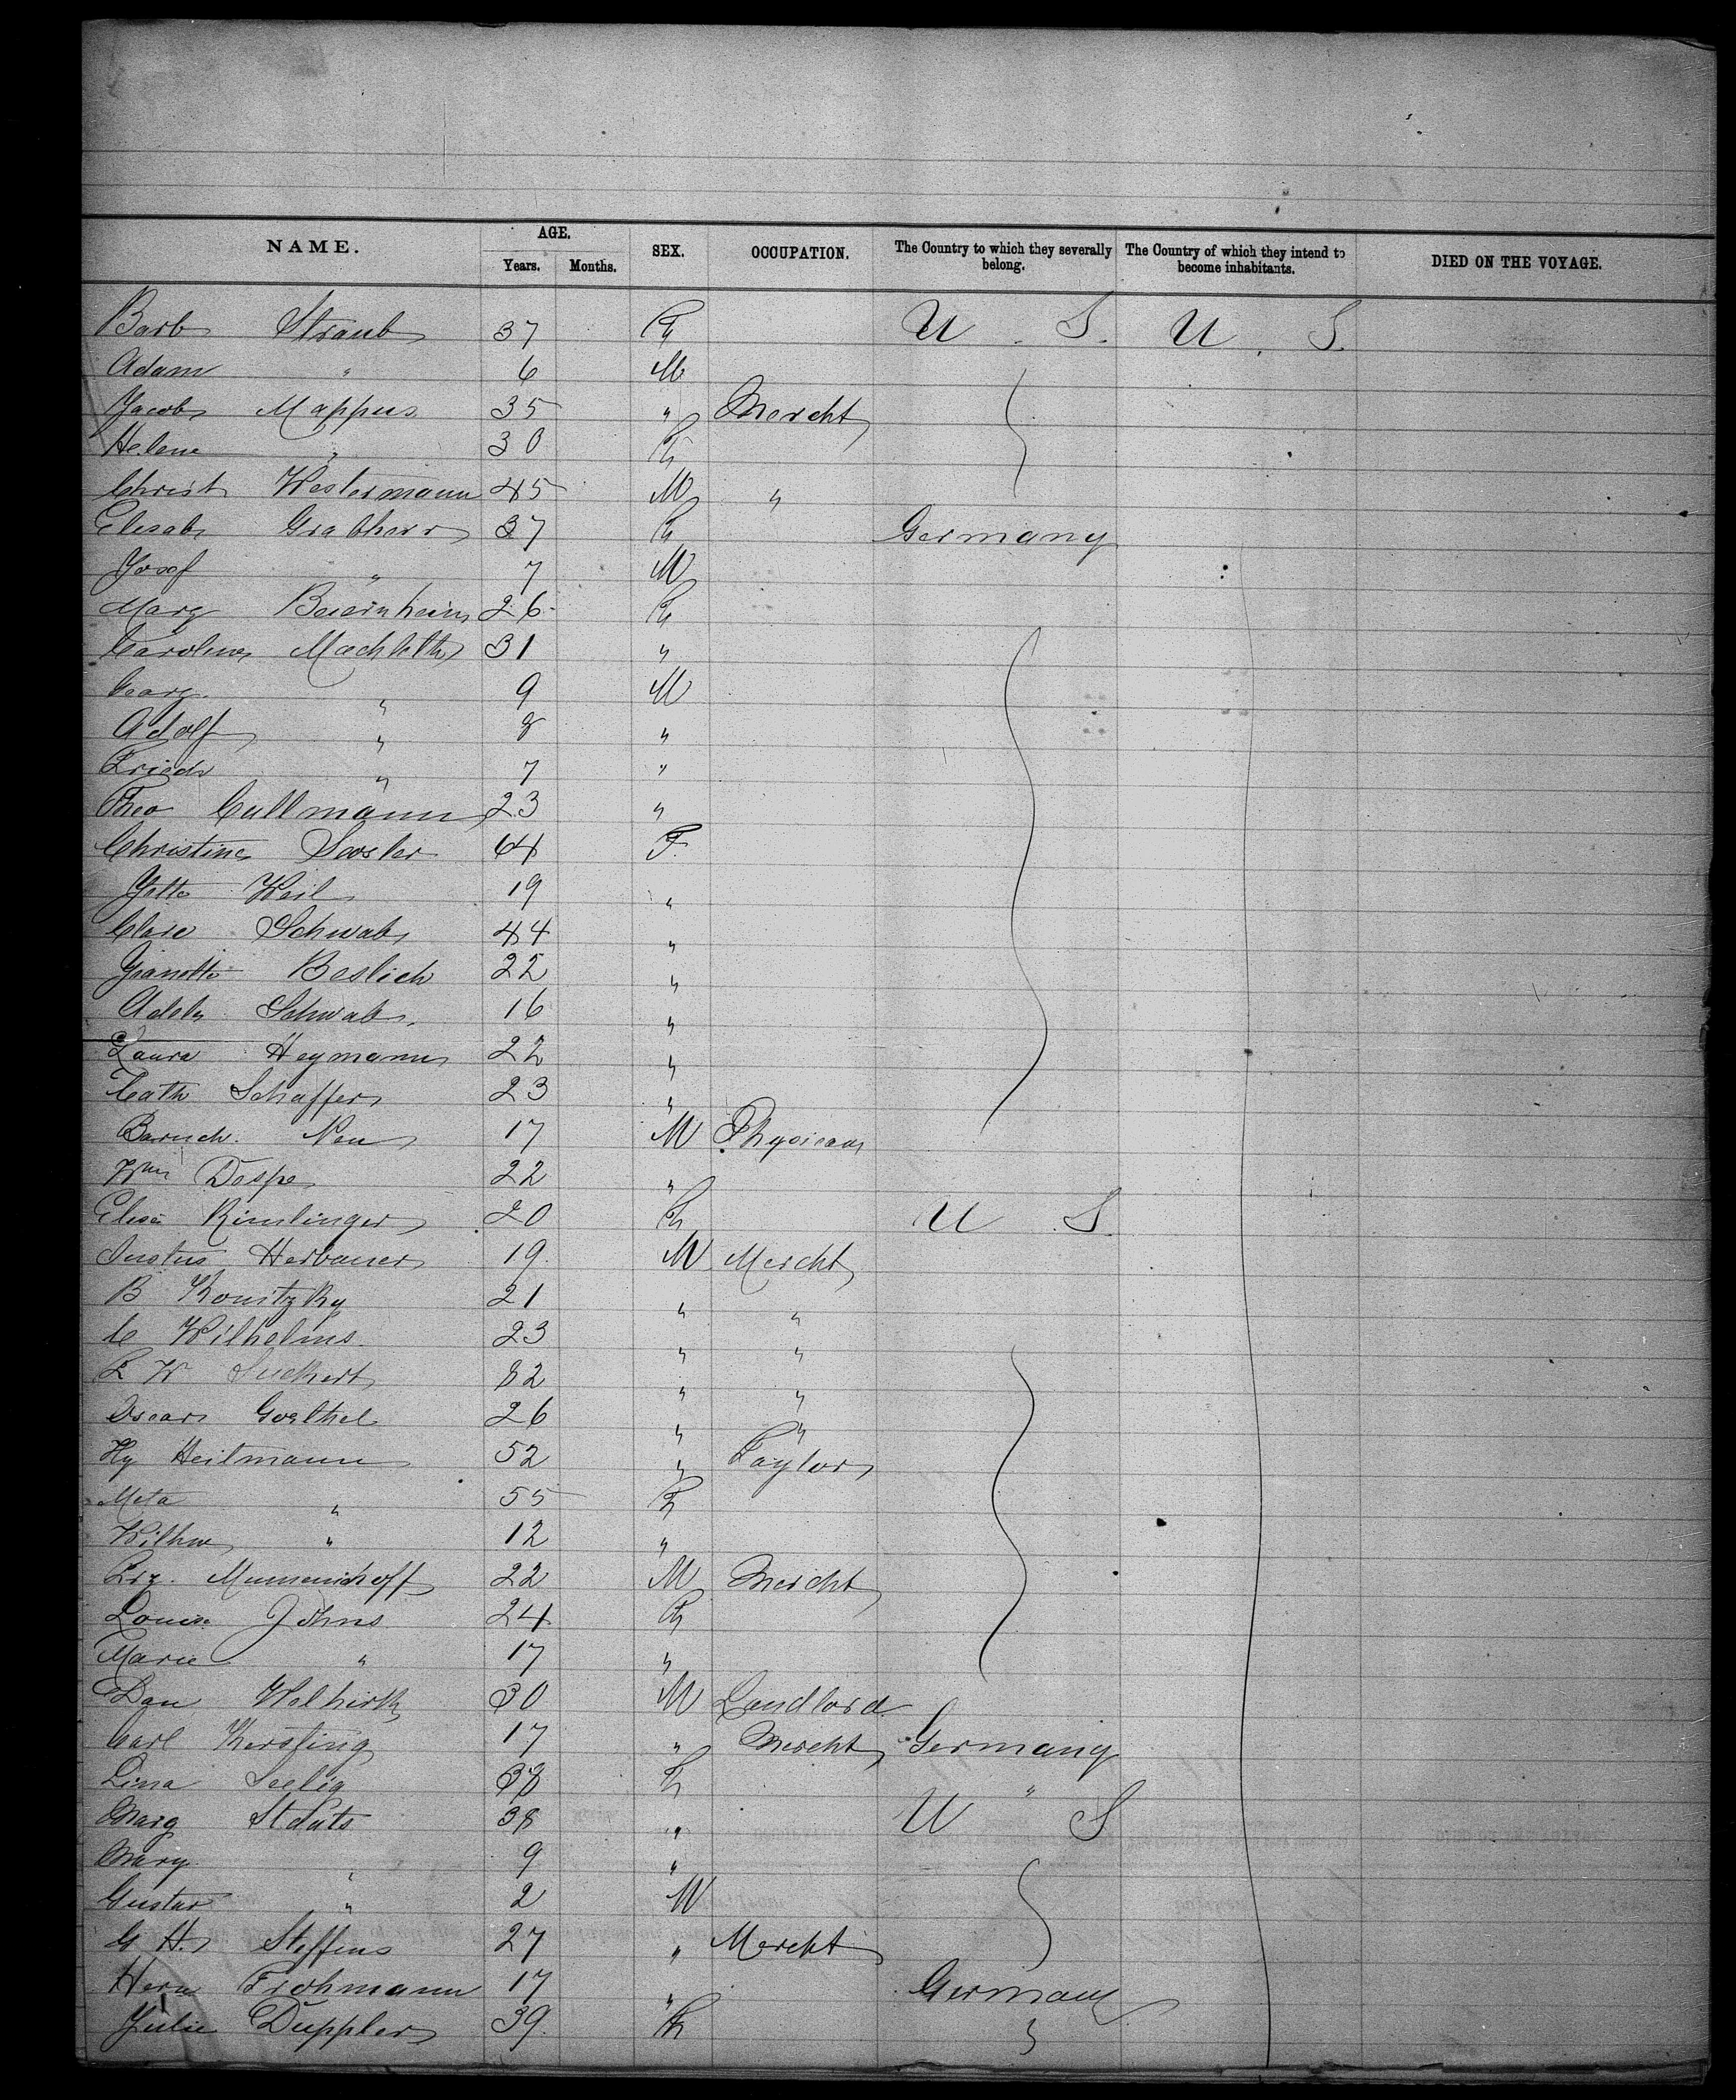 NAME. AGE. SEX. OCCUPATION. The Country to which they severally belong. The Country of which they intend to become inhabitants. DIED ON THE VOYAGE.
Years. Months.
Barb Straub 37 F U . S. U . S.
Adam " 6 M
Jacob Mappus 35 " Mercht
Helene " 30 F
Christ Westermann 45 M "
Elesab Grabherr 37 F Germany
Josef " 7 M
Marg 26 F
Caroline 31 "
Georg " 9 M
Adolf " 8 "
Friedr " 7 "
Theo Cullmann 23 "
Christine 64 F.
Jette Weil 19 "
Clare Schwab 44 "
Jeanette Beslich 22 "
Adele Schwab 16 "
Laura Heymann 22 "
Cath Schaffer 23 "
Baruch Neu 17 M Physician
Wm Despe 22 "
Elise Rimlinger 20 F U S.
Justus Herbauer 19 M Mercht
B Konitzky 21 " "
C Wilhelms 23 " "
L W Suckert " "
Oscar Goethel 26 " "
Hy Heitmann 52 " Taylor
Meta " 55 F
Wilhm " 12 "
Frz. Mumenhoff 22 M Mercht
Louise Johns 24 F
Marie " 17 "
Dan 30 M Landlord
Carl Kersting 17 " Mercht Germany
Lina Seelig F "
Marg Staats 38 " U S
Mary " 9 "
Gustav " 2 M
G H. Steffens 27 " Mercht
Herm Frohmann 17 " Germany
Julie Duppler 39. F "